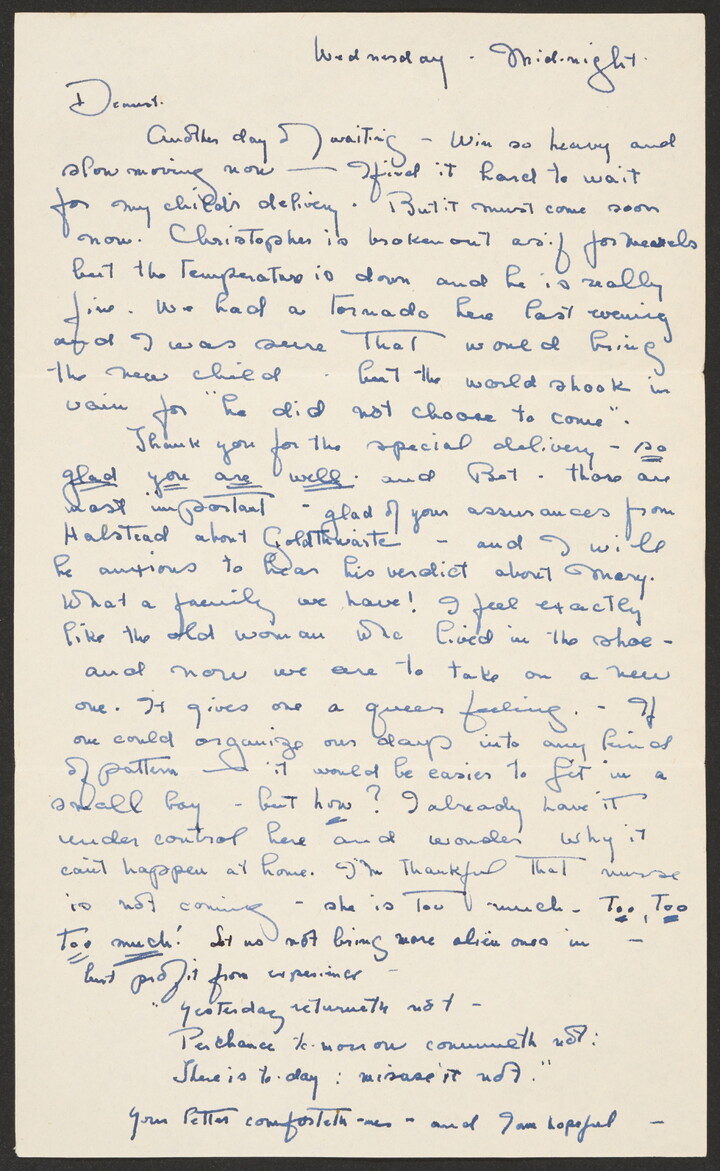 Wednesday - Midnight.
Dearest.
Another day of waiting - Win so heavy and
slow moving now — I find it hard to wait
for my child's delivery. But it must come soon
now. Christopher is broken out as if for measels
but the temperature is down and he is really
fine. We had a tornado here last evening
and I was sure that would bring
the new child - but the world shook in
vain for "he did not choose to come".
Thank you for the special delivery - so
glad you are well. and Bet - those are
most important - glad of your assurances from
Halstead about Goldthwaite - and I will
be anxious to hear his verdict about Mary.
What a family we have! I feel exactly
like the old woman who lived in the shoe -
and now we are to take on a new
one. It gives one a queer feeling. - If
one could organize our days into any kind
of pattern — it would be easier to fit in a
small boy - but how? I already have it
under control here and wonder why it
can't happen at home. I'm thankful that nurse
is not coming - she is too much - Too, Too
too much! Let us not bring more alien ones in -
but profit from experience -
"Yesterday returneth not -
Perchance to-morrow cometh not:
There is to-day: misuse it not."
Your letter comforteth me - and I am hopeful -